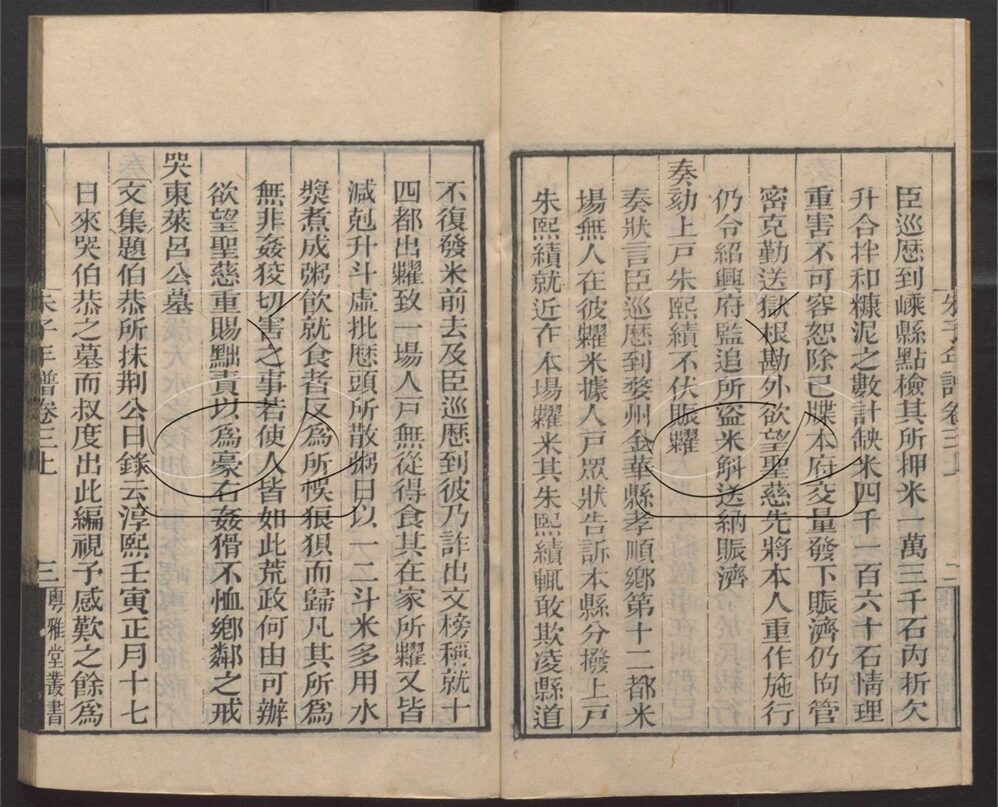 臣巡歷到嵊縣點檢其所押米一萬三千石內折欠
升合拌和糠泥之數計缺米四千一百六十石情理
重害不可容恕除已牒本府交量發下賑濟仍拘管
密克勤送獄根勘外欲望聖慈先將本人重作施行
仍令紹興府監追所盜米斛送納賑濟
奏劾上戶朱熙績不伏賑糶
奏狀言臣巡歷到婺州金華縣孝順鄉第十二都米
場無人在彼糶米據人戶眾狀告訴本縣分撥上戶
朱熙績就近在本場糶米其朱熙績輒敢欺凌縣道
不復發米前去及臣巡歷到彼乃詐出文榜稱就十
四都出糶致一場人戶無從得食其在家所糶又皆
減剋升斗虛批歷頭所散粥日以一二斗米多用水
漿煮成粥飲就食者反為所悞狼狽而歸凡其所為
無非姦狡切害之事若使人皆如此荒政何由可辦
欲望聖慈重賜黜責以為豪右姦猾不恤鄉鄰之戒
哭東萊呂公墓
文集題伯恭所抹荆公日錄云淳熙壬寅正月十七
日來哭伯恭之墓而叔度出此編視予感歎之餘為
朱子年譜卷三上
三
粵雅堂叢書